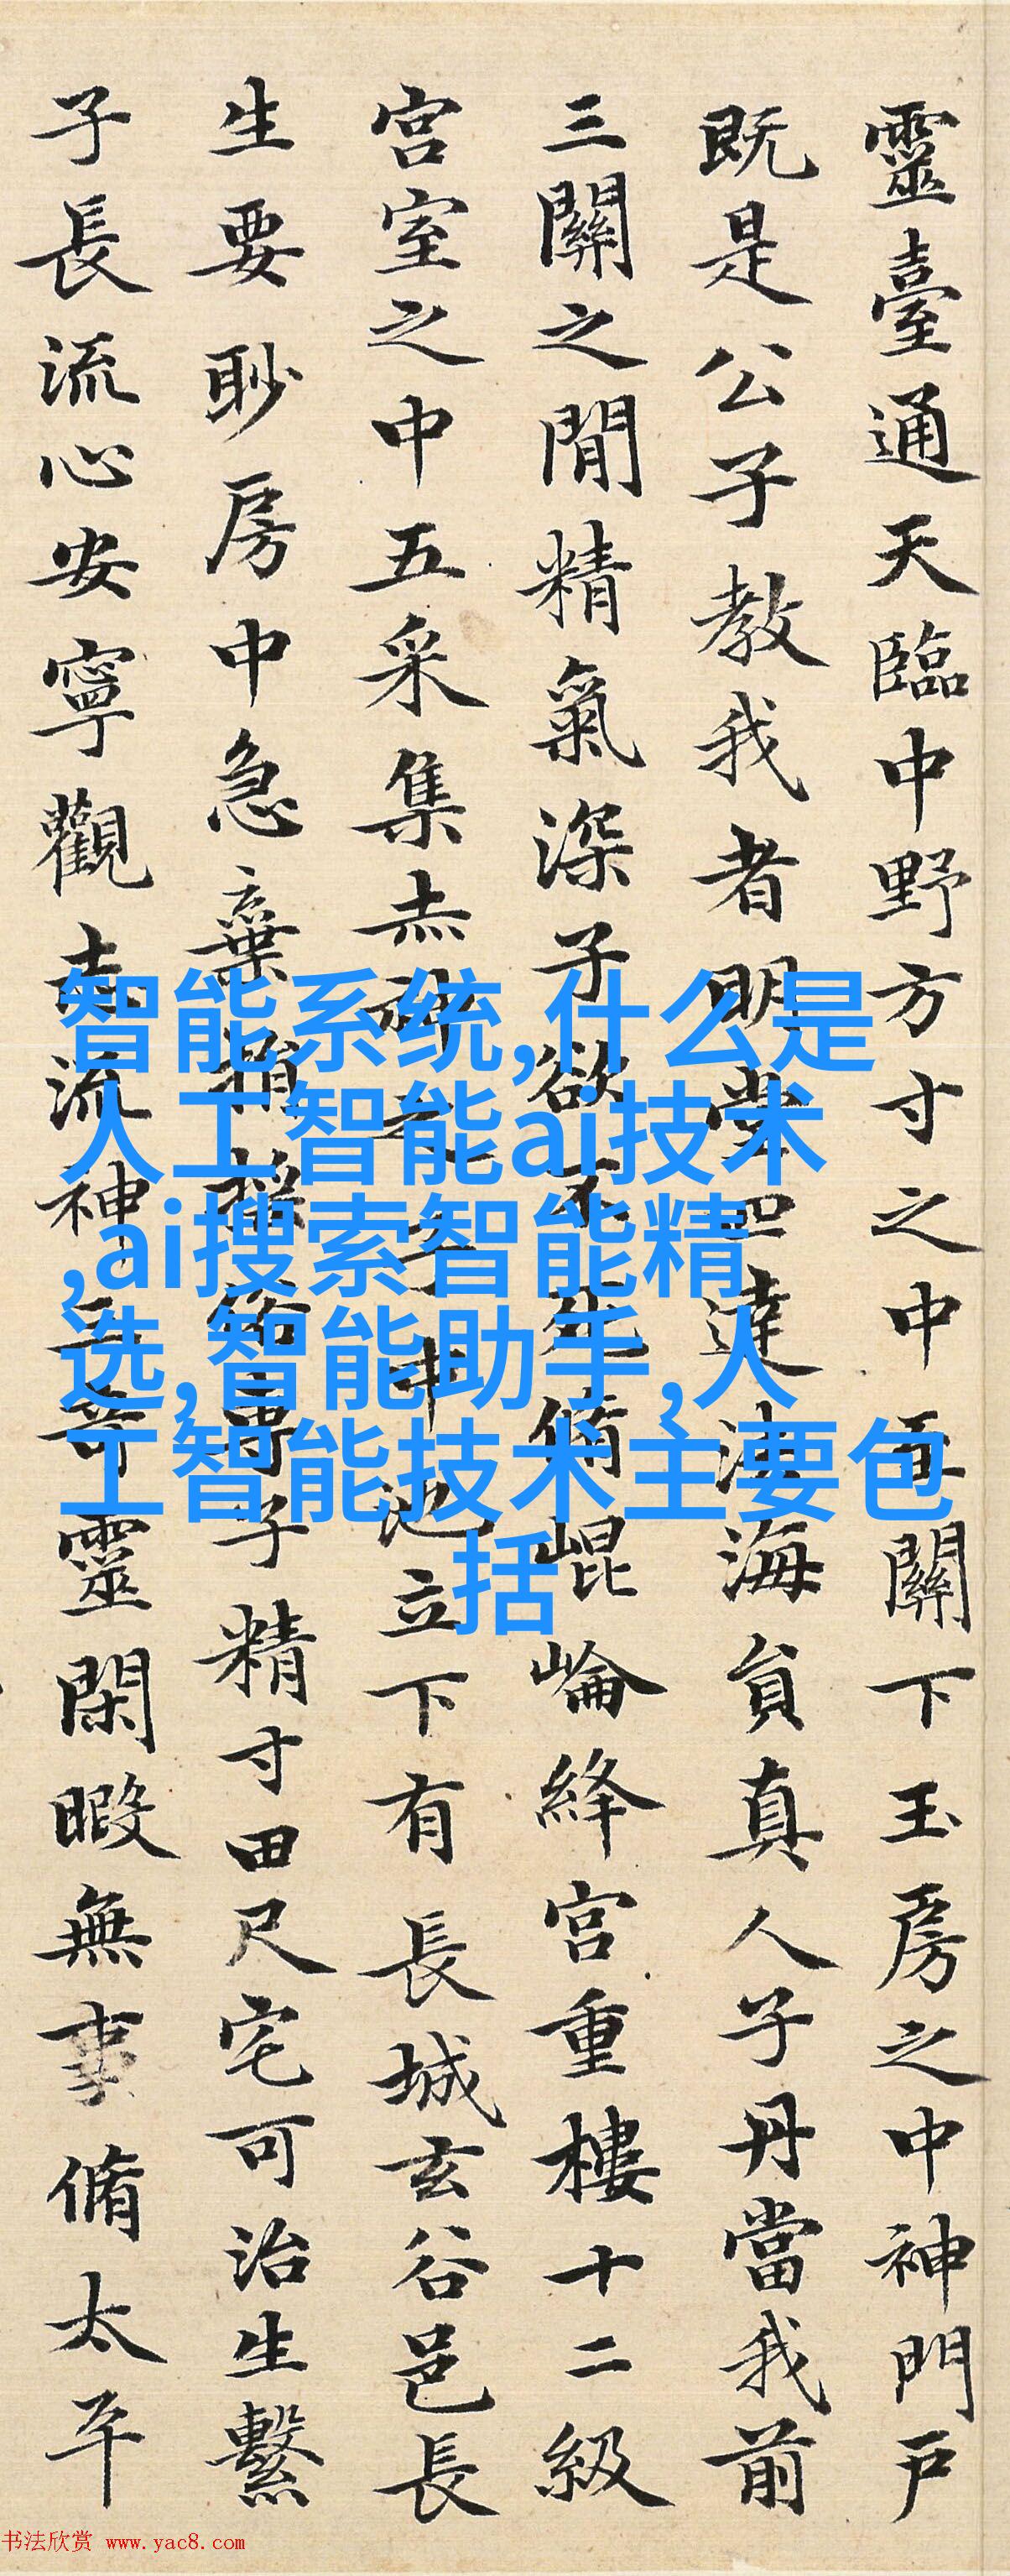 靈臺通天臨中野方寸之中至關下玉房之中神門戶
既是公子教我者明堂四達法海員真人子丹當我前
三關之閒精氣深子欲不死脩崐崘絳宮重樓十二級
宮室之中五采集赤神之子中池立下有長城玄谷邑長
生要眇房中急棄捐俗專子精寸田尺宅可治生繫
子長流心安寧觀志流神三奇靈閑暇無事脩太平
智能系统,什么是
人工智能ai技术
,ai搜索智能精
选,智能助手,人
工智能技术主要包
括
书法欣赏 www.yac8.com